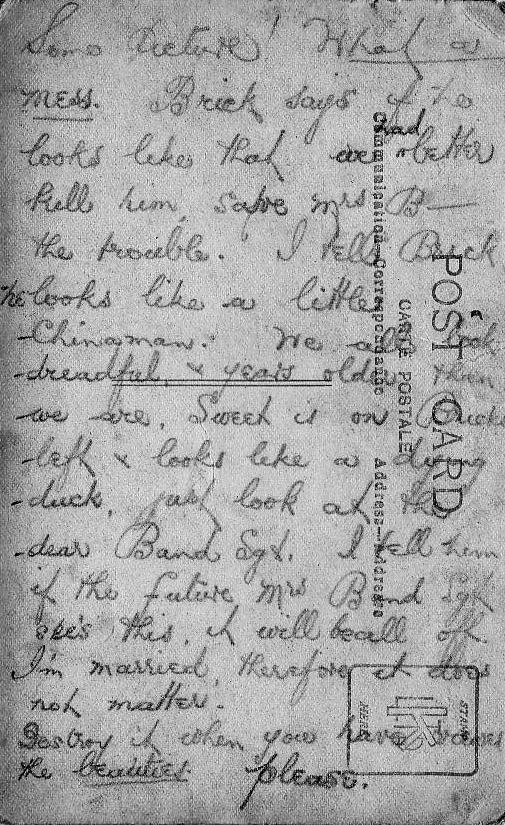 Some Picture! What a
mess. Brick says if he
looks like that we had better
kill him, save Mrs B—
the trouble. I tell Brick
he looks like a little
Chinaman. We all look
dreadful, & years older than
we are. Sweet is on Bricks
left & looks like a dying
duck, just look at the
dear Band Sgt. I tell him
if the future Mrs Band Sgt
sees this, it will be all off.
I'm married, therefore it does
not matter.
Destroy it when you have
the beauties please.
POST CARD
CARTE POSTALE
Communication—Correspondance
Address—Adresse
STAMP
HERE